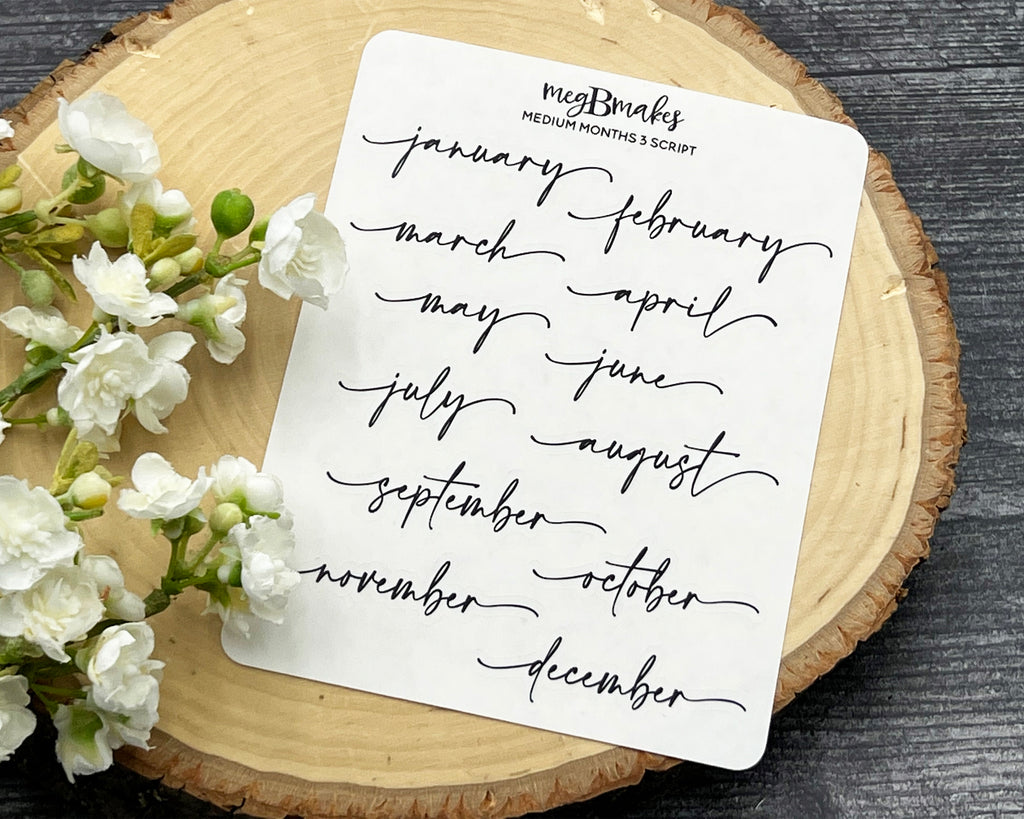 megBmakes
MEDIUM MONTHS 3 SCRIPT
january
february
march
april
may
june
july
august
september
october
november
december